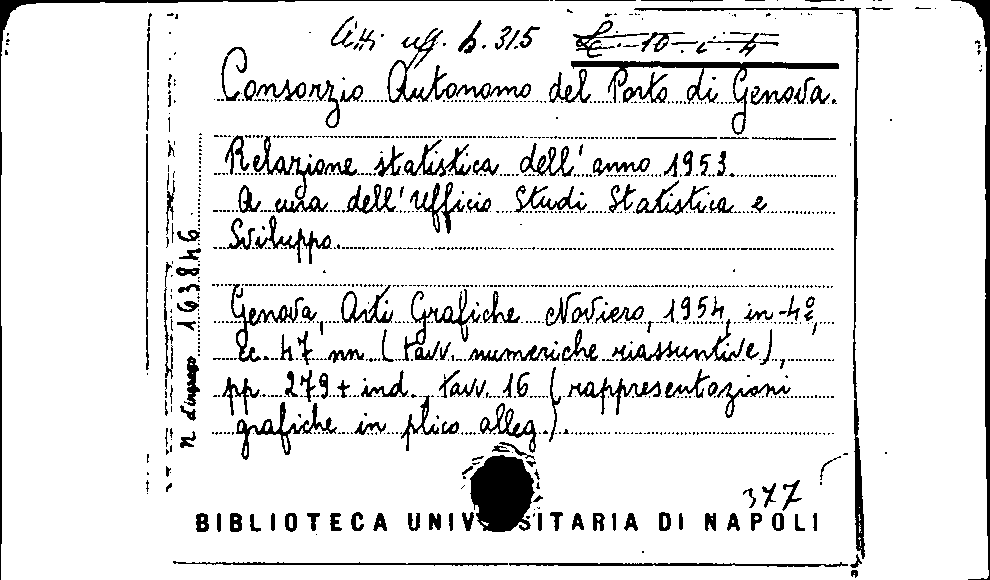 Atti uff. b. 315 Sc. 10 - i - 4
Consorzio Autonomo del Porto di Genova.
Relazione statistica dell'anno 1953.
A cura dell'Ufficio Studi Statistica e
Sviluppo.
Genova, Arti Grafiche Noviero, 1954, in-4º,
cc. 47 nn (tavv. numeriche riassuntive),
pp. 279 + ind., tavv. 16 (rappresentazioni
grafiche in plico alleg.).
n d'ingresso 163846
377
BIBLIOTECA UNIVERSITARIA DI NAPOLI